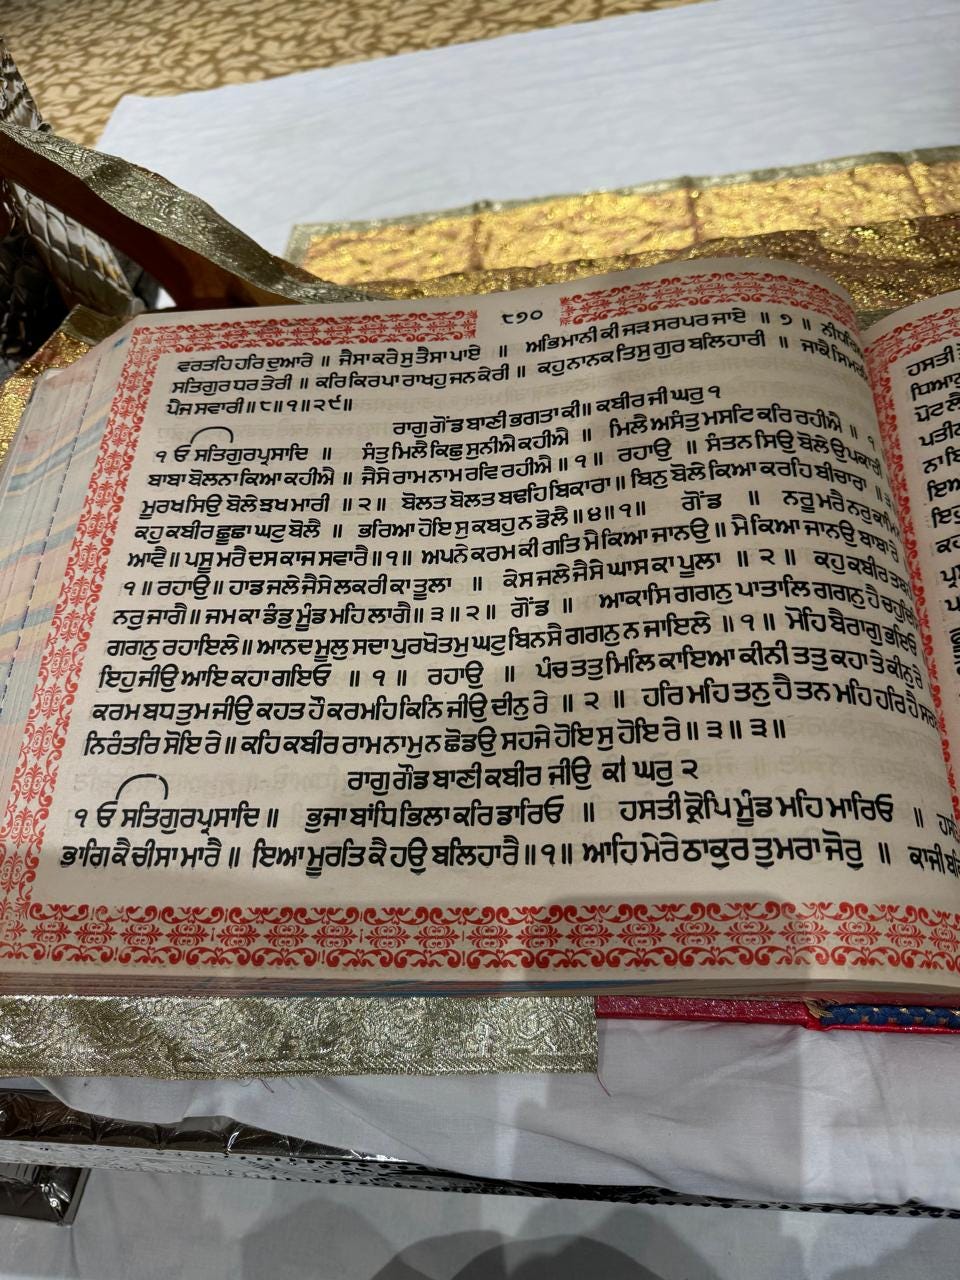 ੮੭੦
ਵਰਤਹਿ ਹਰਿ ਦੁਆਰੇ ॥ ਜੈਸਾ ਕਰੇ ਸੁ ਤੈਸਾ ਪਾਏ ॥ ਅਭਿਮਾਨੀ ਕੀ ਜੜ ਸਰਪਰ ਜਾਏ ॥ ੭ ॥
ਸਤਿਗੁਰ ਧਰ ਤੇਰੀ ॥ ਕਰਿ ਕਿਰਪਾ ਰਾਖਹੁ ਜਨ ਕੇਰੀ ॥ ਕਹੁ ਨਾਨਕ ਤਿਸੁ ਗੁਰ ਬਲਿਹਾਰੀ ॥ ਜਾ ਕੈ ਸਿਮਰਨਿ
ਪੈਜ ਸਵਾਰੀ ॥ ੮ ॥ ੧ ॥ ੨੯ ॥
ਰਾਗੁ ਗੋਂਡ ਬਾਣੀ ਭਗਤਾ ਕੀ ॥ ਕਬੀਰ ਜੀ ਘਰੁ ੧
ੴ ਸਤਿਗੁਰਪ੍ਰਸਾਦਿ ॥ ਸੰਤੁ ਮਿਲੈ ਕਿਛੁ ਸੁਨੀਐ ਕਹੀਐ ॥ ਮਿਲੈ ਅਸੰਤੁ ਮਸਟਿ ਕਰਿ ਰਹੀਐ ॥ ੧
ਬਾਬਾ ਬੋਲਨਾ ਕਿਆ ਕਹੀਐ ॥ ਜੈਸੇ ਰਾਮ ਨਾਮ ਰਵਿ ਰਹੀਐ ॥ ੧ ॥ ਰਹਾਉ ॥ ਸੰਤਨ ਸਿਉ ਬੋਲੇ ਉਪਕਾਰੀ
ਮੂਰਖ ਸਿਉ ਬੋਲੇ ਝਖ ਮਾਰੀ ॥ ੨ ॥ ਬੋਲਤ ਬੋਲਤ ਬਢਹਿ ਬਿਕਾਰਾ ॥ ਬਿਨੁ ਬੋਲੇ ਕਿਆ ਕਰਹਿ ਬੀਚਾਰਾ ॥
ਕਹੁ ਕਬੀਰ ਛੂਛਾ ਘਟੁ ਬੋਲੈ ॥ ਭਰਿਆ ਹੋਇ ਸੁ ਕਬਹੁ ਨ ਡੋਲੈ ॥ ੪ ॥ ੧ ॥ ਗੋਂਡ ॥ ਨਰੂ ਮਰੈ ਨਰੁ ਕਾਮਿ
ਆਵੈ ॥ ਪਸੂ ਮਰੈ ਦਸ ਕਾਜ ਸਵਾਰੈ ॥ ੧ ॥ ਅਪਨੇ ਕਰਮ ਕੀ ਗਤਿ ਮੈ ਕਿਆ ਜਾਨਉ ॥ ਮੈ ਕਿਆ ਜਾਨਉ ਬਾਬਾ ਰੇ
੧ ॥ ਰਹਾਉ ॥ ਹਾਡ ਜਲੇ ਜੈਸੇ ਲਕਰੀ ਕਾ ਤੂਲਾ ॥ ਕੇਸ ਜਲੇ ਜੈਸੇ ਘਾਸ ਕਾ ਪੂਲਾ ॥ ੨ ॥ ਕਹੁ ਕਬੀਰ
ਨਰੁ ਜਾਗੈ ॥ ਜਮ ਕਾ ਡੰਡੁ ਮੂੰਡ ਮਹਿ ਲਾਗੈ ॥ ੩ ॥ ੨ ॥ ਗੋਂਡ ॥ ਆਕਾਸਿ ਗਗਨੁ ਪਾਤਾਲਿ ਗਗਨੁ ਹੈ ਚਹੁ ਦਿਸਿ
ਗਗਨੁ ਰਹਾਇਲੇ ॥ ਆਨਦ ਮੂਲੁ ਸਦਾ ਪੁਰਖੋਤਮੁ ਘਟੁ ਬਿਨਸੈ ਗਗਨੁ ਨ ਜਾਇਲੇ ॥ ੧ ॥ ਮੋਹਿ ਬੈਰਾਗੁ ਭਇਓ
ਇਹੁ ਜੀਉ ਆਇ ਕਹਾ ਗਇਓ ॥ ੧ ॥ ਰਹਾਉ ॥ ਪੰਚ ਤਤੁ ਮਿਲਿ ਕਾਇਆ ਕੀਨੀ ਤਤੁ ਕਹਾ ਤੇ ਕੀਨੁ ਰੇ
ਕਰਮ ਬਧ ਤੁਮ ਜੀਉ ਕਹਤ ਹੌ ਕਰਮਹਿ ਕਿਨਿ ਜੀਉ ਦੀਨੁ ਰੇ ॥ ੨ ॥ ਹਰਿ ਮਹਿ ਤਨੁ ਹੈ ਤਨ ਮਹਿ ਹਰਿ ਹੈ
ਨਿਰੰਤਰਿ ਸੋਇ ਰੇ ॥ ਕਹਿ ਕਬੀਰ ਰਾਮ ਨਾਮੁ ਨ ਛੋਡਉ ਸਹਜੇ ਹੋਇ ਸੁ ਹੋਇ ਰੇ ॥ ੩ ॥ ੩ ॥
ਰਾਗੁ ਗੌਡ ਬਾਣੀ ਕਬੀਰ ਜੀਉ ਕੀ ਘਰੁ ੨
ੴ ਸਤਿਗੁਰਪ੍ਰਸਾਦਿ ॥ ਭੁਜਾ ਬਾਂਧਿ ਭਿਲਾ ਕਰਿ ਡਾਰਿਓ ॥ ਹਸਤੀ ਕ੍ਰੋਪਿ ਮੂੰਡ ਮਹਿ ਮਾਰਿਓ ॥
ਭਾਗਿ ਕੈ ਚੀਸਾ ਮਾਰੈ ॥ ਇਆ ਮੂਰਤਿ ਕੈ ਹਉ ਬਲਿਹਾਰੈ ॥ ੧ ॥ ਆਹਿ ਮੇਰੇ ਠਾਕੁਰ ਤੁਮਰਾ ਜੋਰੁ ॥ ਕਾਜੀ